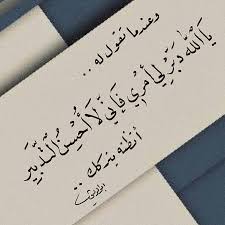 وعندما تقول له ..
يَا اللّٰه دَبِّرْ لِي أَمْرِي فَإِنِّي لَا أُحْسِنُ التَّدْبِيرَ
أتظنه يتركك ..